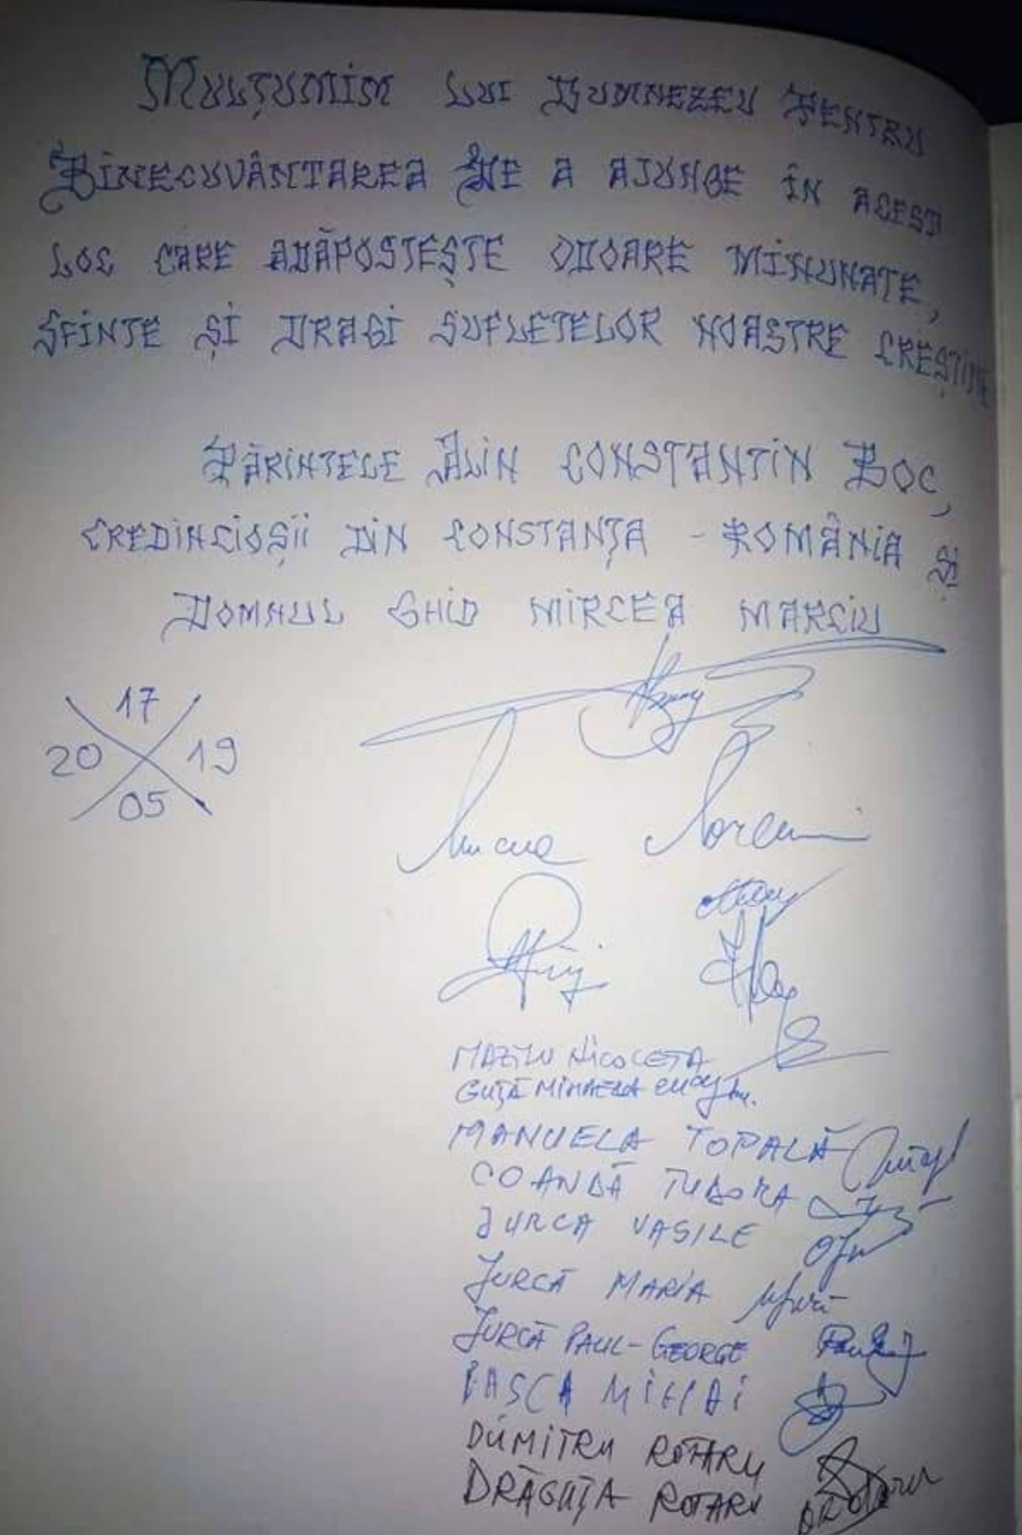 Mulțumim lui Dumnezeu Pentru
Binecuvântarea De a ajunge în acest
loc care adăpostește odoare minunate,
sfinte și dragi sufletelor noastre creștine
Părintele Alin Constantin Boc,
credincioșii din Constanța - România și
Domnul Ghid Mircea Marciu
17
20 19
05
MAZILU NICOLETA
GUȚĂ MIHAELA
MANUELA TOPALĂ
COANDĂ TUDORA
JURCA VASILE
JURCĂ MARIA
JURCĂ PAUL-GEORGE
PASCA MIHAI
DUMITRU ROTARU
DRĂGUȚA ROTARU